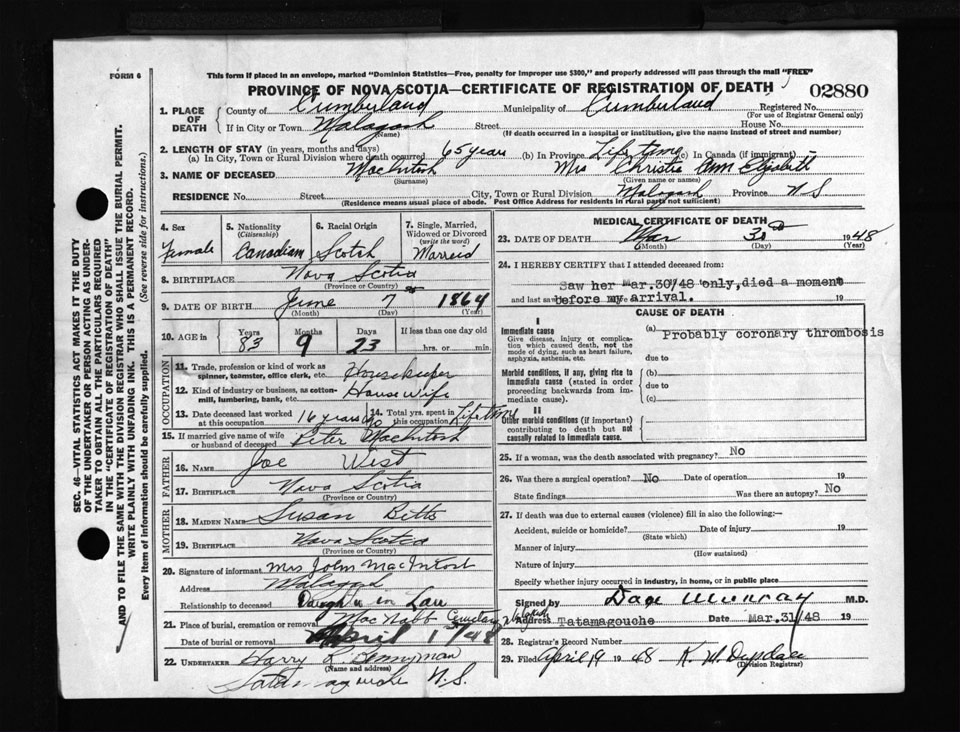 FORM 6
This form if placed in an envelope, marked "Dominion Statistics—Free, penalty for improper use $300," and properly addressed will pass through the mail "FREE"
PROVINCE OF NOVA SCOTIA—CERTIFICATE OF REGISTRATION OF DEATH
02880
1. PLACE OF DEATH
County of Cumberland Municipality of Cumberland Registered No.
(For use of Registrar General only)
If in City or Town Malagash Street House No.
(Name) (If death occurred in a hospital or institution, give the name instead of street and number)
2. LENGTH OF STAY (in years, months and days)
(a) In City, Town or Rural Division where death occurred 65 years (b) in Province Life time (c) in Canada (if immigrant)
3. NAME OF DECEASED MacIntosh Mrs Christie Ann Elizabeth
(Surname) (Given name or names)
RESIDENCE No. Street City, Town or Rural Division Malagash Province N.S.
(Residence means usual place of abode. Post Office Address for residents in rural parts not sufficient)
4. Sex 5. Nationality 6. Racial Origin 7. Single, Married, Widowed or Divorced
(Citizenship) (write the word)
Female Canadian Scotch Married
8. BIRTHPLACE Nova Scotia
(Province or Country)
9. DATE OF BIRTH June 7 1864
(Month) (Day) (Year)
10. AGE in Years Months Days If less than one day old
83 9 23 hrs. or min.
OCCUPATION
11. Trade, profession or kind of work as spinner, teamster, office clerk, etc. Housekeeper
12. Kind of industry or business, as cotton-mill, lumbering, bank, etc. House Wife
13. Date deceased last worked at this occupation 16 years ago 14. Total yrs. spent in this occupation Life time
15. If married give name of wife or husband of deceased Peter MacIntosh
FATHER
16. NAME Joe West
17. BIRTHPLACE Nova Scotia
(Province or Country)
MOTHER
18. MAIDEN NAME Susan Betts
19. BIRTHPLACE Nova Scotia
(Province or Country)
20. Signature of informant Mrs John MacIntosh
Address Malagash
Relationship to deceased Daughter in Law
21. Place of burial, cremation or removal MacNabb Cemetery Malagash
Date of burial or removal April 1st/48
22. UNDERTAKER Harry L.
(Name and address)
Tatamagouche N.S.
MEDICAL CERTIFICATE OF DEATH
23. DATE OF DEATH Mar 30 1948
(Month) (Day) (Year)
24. I HEREBY CERTIFY that I attended deceased from:
Saw her Mar.30/48 only, died a moment
and last saw before my arrival. 19
CAUSE OF DEATH
I
Immediate cause
Give disease, injury or complication which caused death, not the mode of dying, such as heart failure, asphyxia, asthenia, etc.
(a) Probably coronary thrombosis
due to
Morbid conditions, if any, giving rise to immediate cause (stated in order proceeding backwards from immediate cause).
(b)
due to
(c)
II
Other morbid conditions (if important) contributing to death but not causally related to immediate cause.
25. If a woman, was the death associated with pregnancy? No
26. Was there a surgical operation? No Date of operation 19
State findings Was there an autopsy? No
27. If death was due to external causes (violence) fill in also the following:—
Accident, suicide or homicide? Date of injury 19
(State which)
Manner of injury
(How sustained)
Nature of injury
Specify whether injury occurred in industry, in home, or in public place
Signed by Dan Murray M.D.
Address Tatamagouche Date Mar.31/48 19
28. Registrar's Record Number
29. Filed April 9 1948 K. W.
(Division Registrar)
SEC. 46—VITAL STATISTICS ACT MAKES IT THE DUTY
OF THE UNDERTAKER OR PERSON ACTING AS UNDER-
TAKER TO OBTAIN ALL THE PARTICULARS REQUIRED
IN THE "CERTIFICATE OF REGISTRATION OF DEATH"
AND TO FILE THE SAME WITH THE DIVISION REGISTRAR WHO SHALL ISSUE THE BURIAL PERMIT.
WRITE PLAINLY WITH UNFADING INK. THIS IS A PERMANENT RECORD.
Every item of information should be carefully supplied. (See reverse side for instructions.)